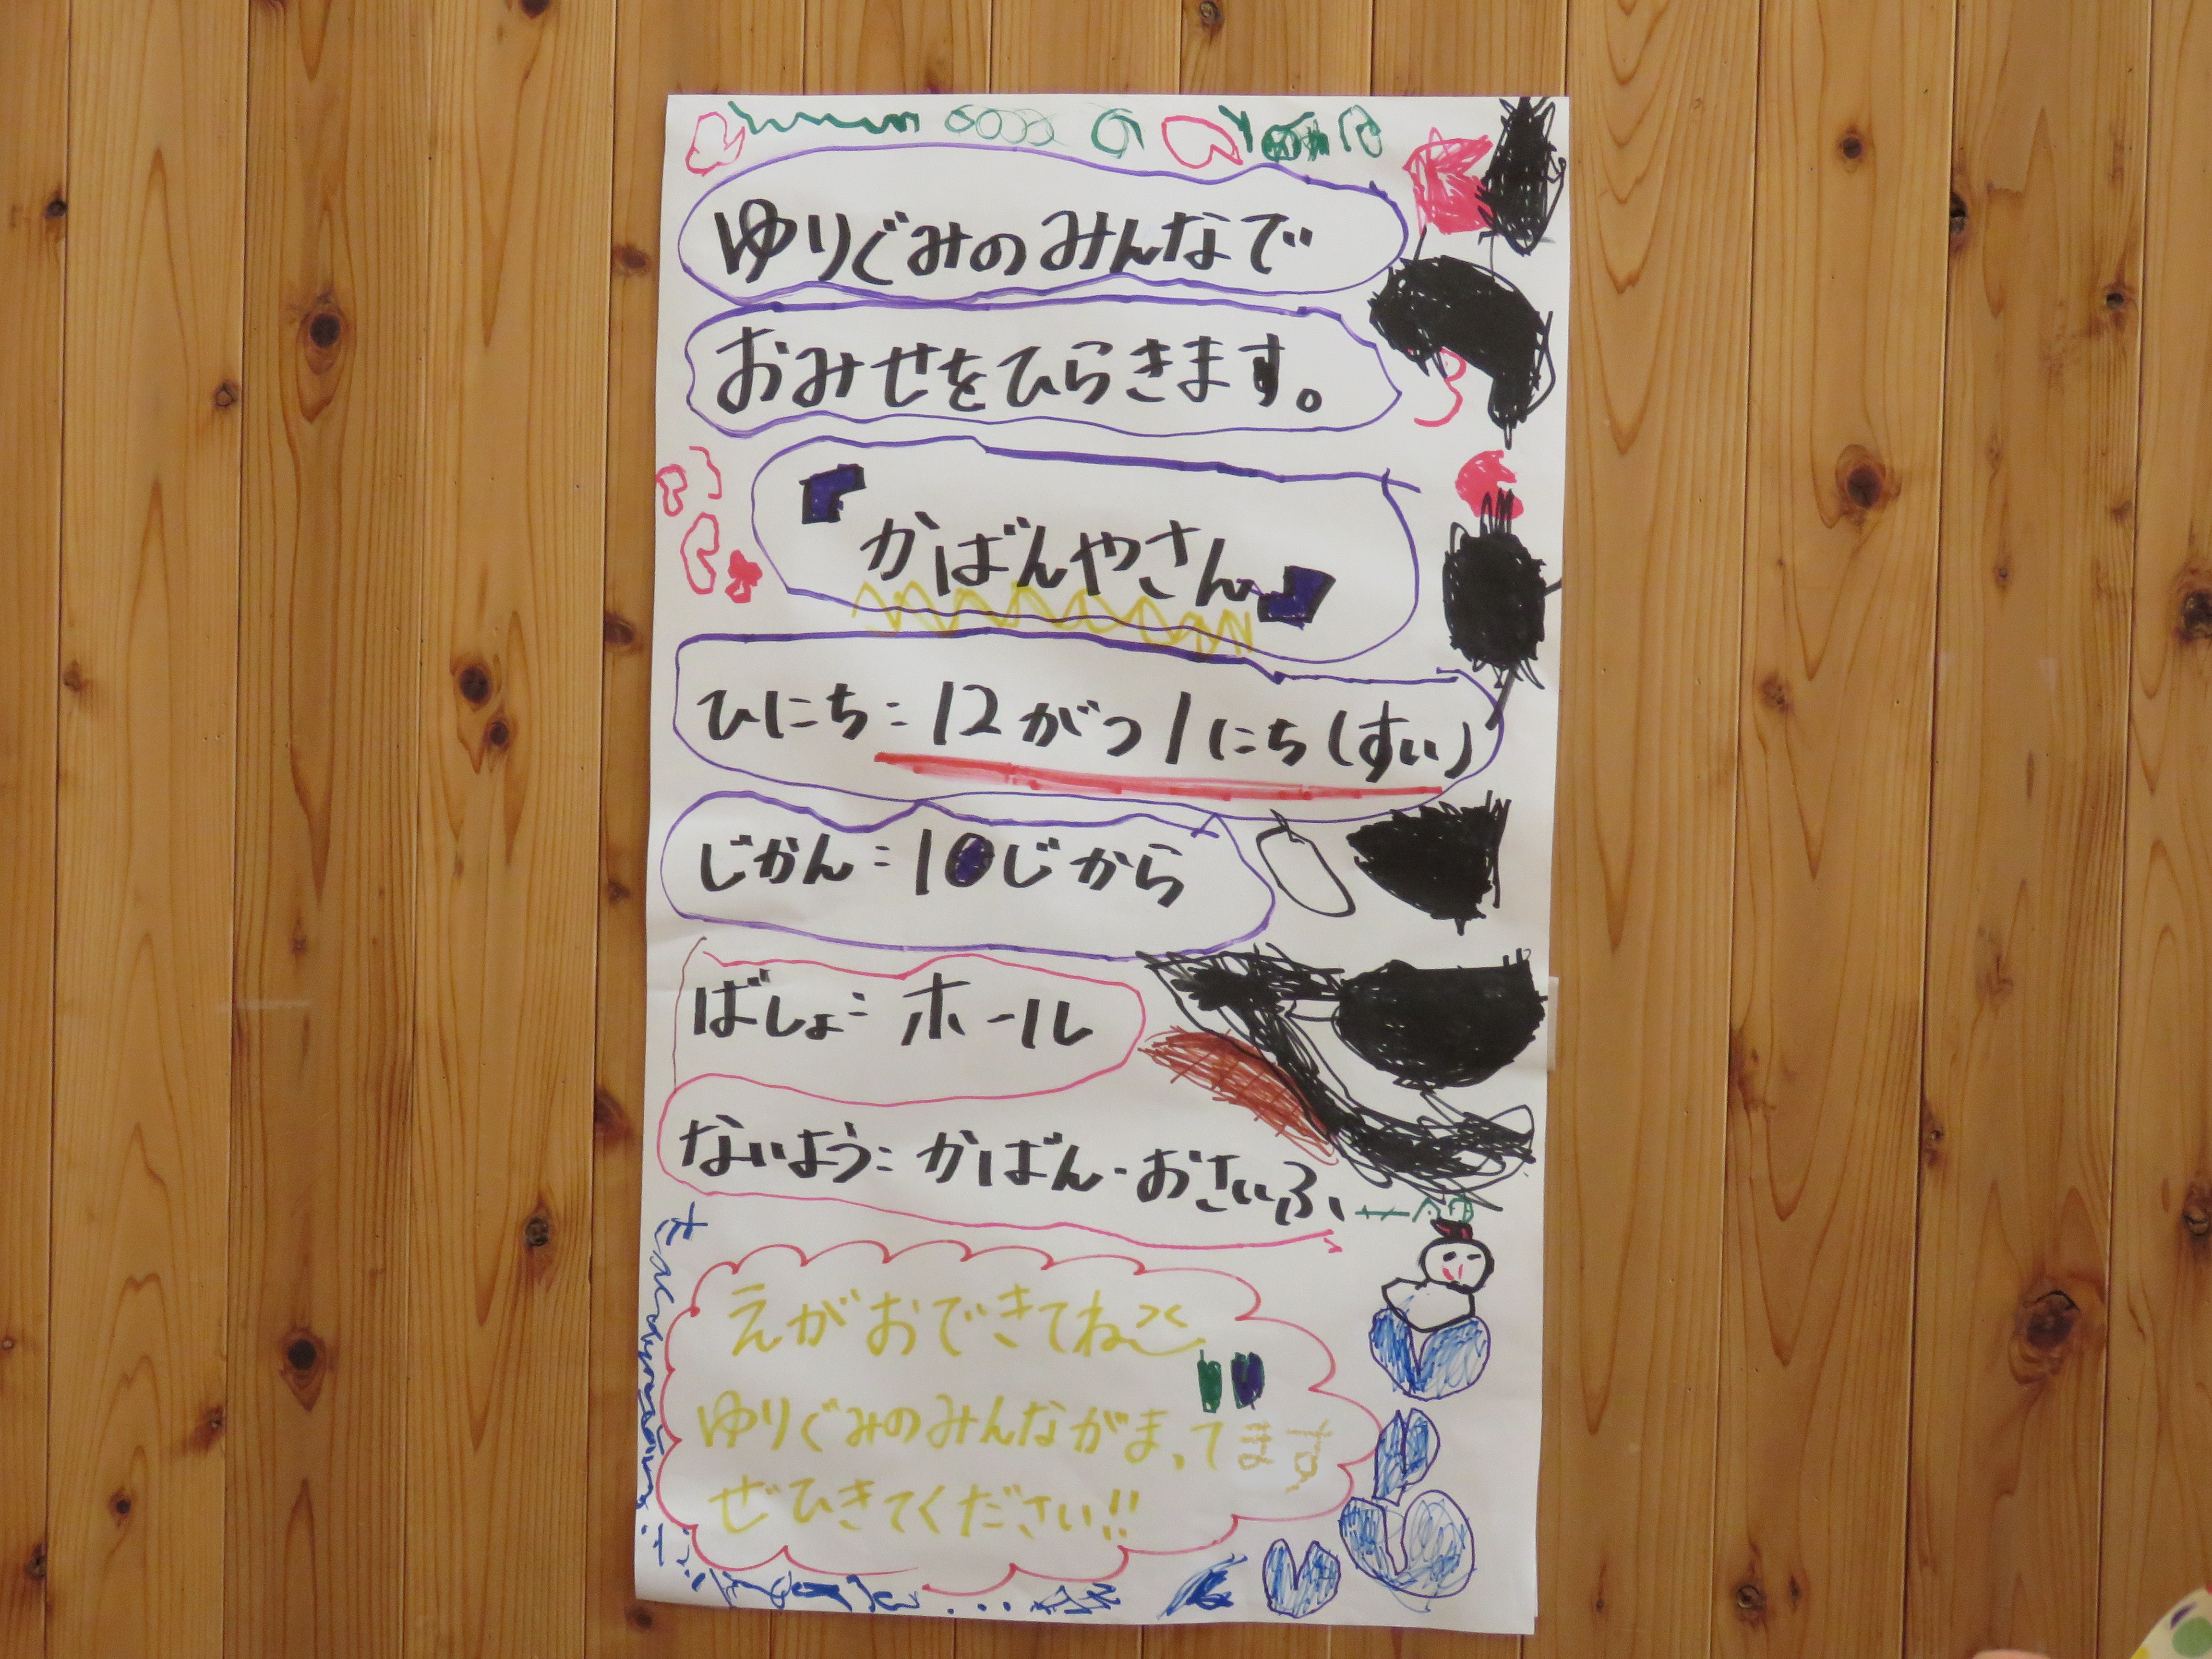 ゆりぐみのみんなで
おみせをひらきます。
『かばんやさん』
ひにち:12がつ1にち(すい)
じかん:10じから
ばしょ:ホール
ないよう:かばん・おさいふ
えがおできてね
ゆりぐみのみんながまってます
ぜひきてください!!